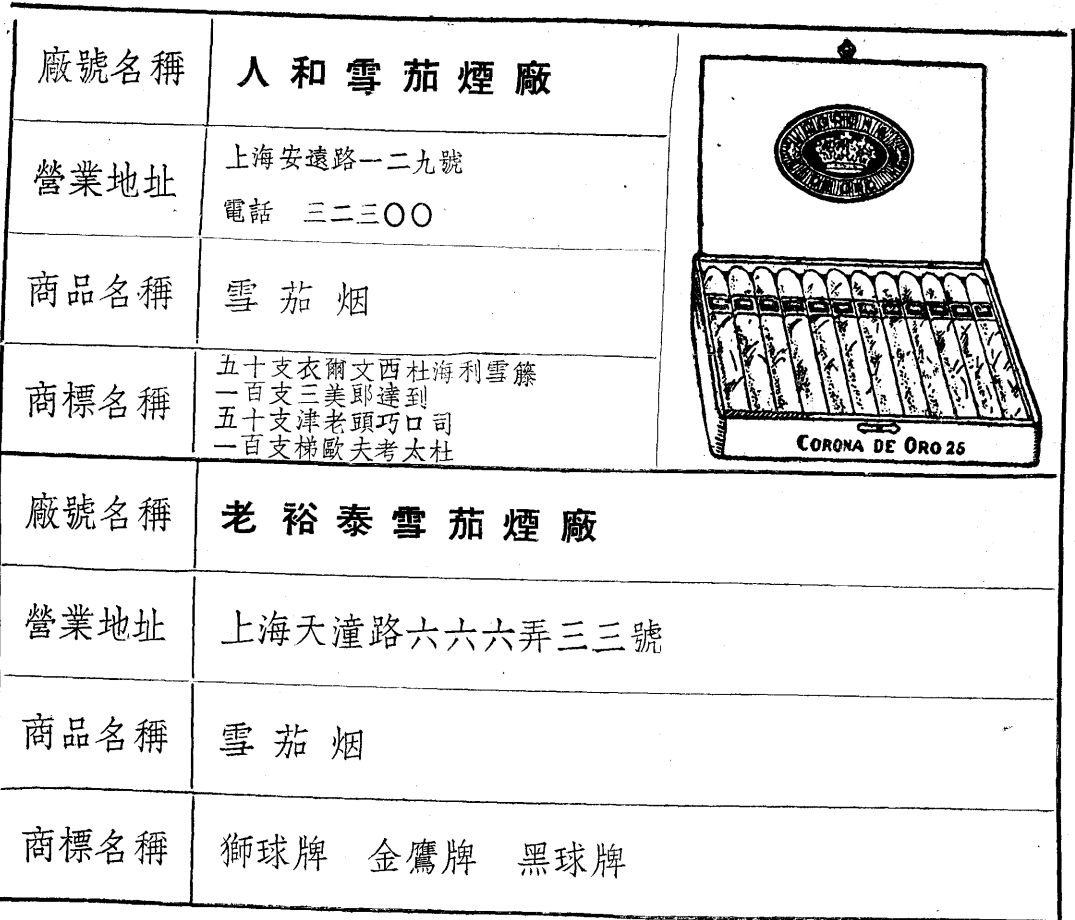 廠號名稱 人和雪茄煙廠
營業地址 上海安遠路一二九號
電話 三二三〇〇
商品名稱 雪茄烟
商標名稱 五十支衣爾文西杜海利雪籐
一百支三美耶達到
五十支津老頭巧口司
一百支梯歐夫考太杜
CORONA DE ORO 25
廠號名稱 老裕泰雪茄煙廠
營業地址 上海天潼路六六六弄三三號
商品名稱 雪茄烟
商標名稱 獅球牌 金鷹牌 黑球牌